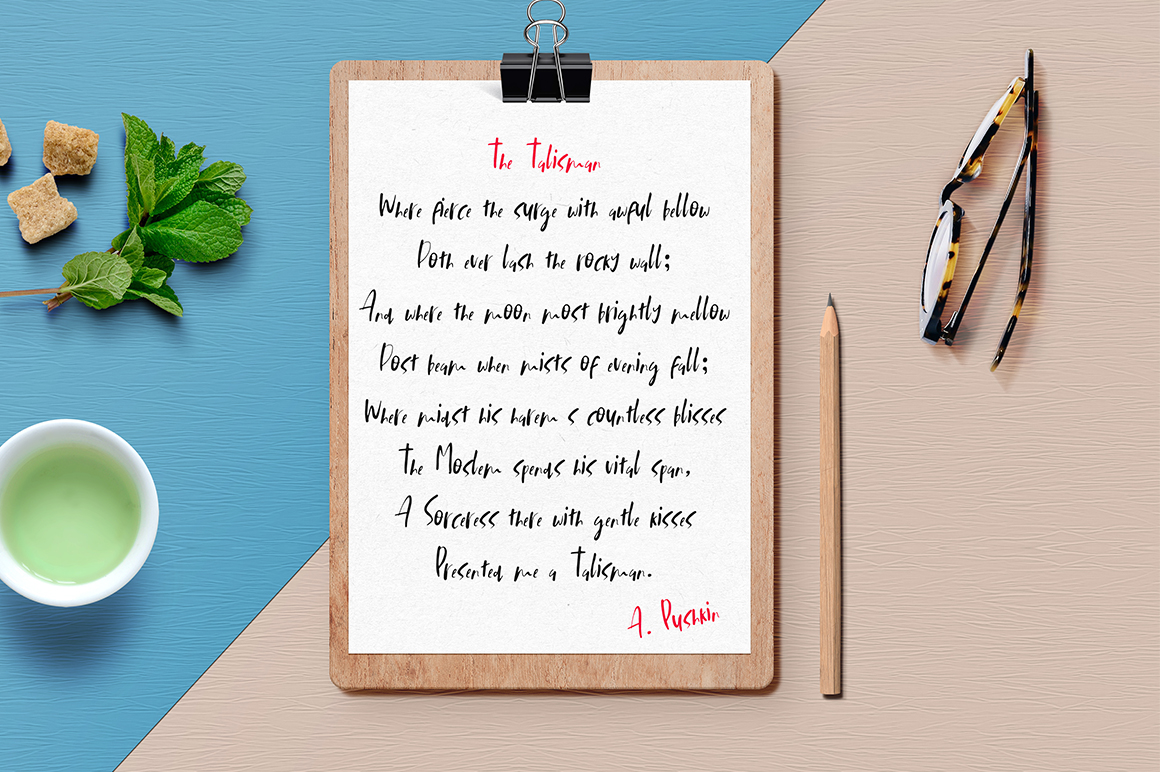 The Talisman
Where fierce the surge with awful bellow
Doth ever lash the rocky wall;
And where the moon most brightly mellow
Dost beam when mists of evening fall;
Where midst his harem s countless blisses
The Moslem spends his vital span,
A Sorceress there with gentle kisses
Presented me a Talisman.
A. Pushkin